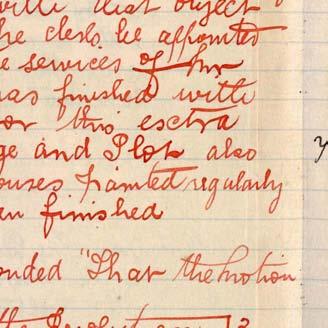 with that object
he clerk be appointed
e services of Mr
has finished with
or this esctra
ge and Plot also
ouses painted regularly
en finished
onded "That the motion
the